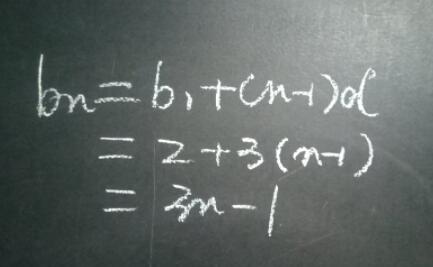 bn = b₁ + (n-1)d
= 2 + 3(n-1)
= 3n - 1